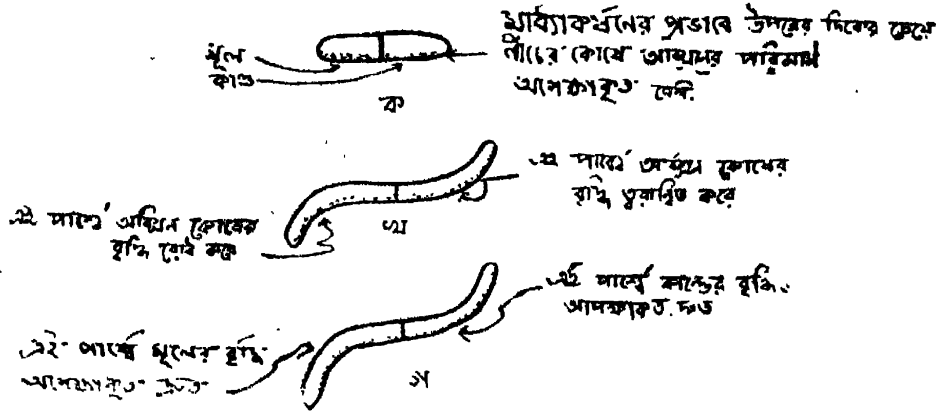 মাধ্যাকর্ষনের প্রভাবে উপরের দিকের চেয়ে
নীচের কোষে অক্সিনের পরিমাণ
অপেক্ষাকৃত বেশী.
মূল
কাণ্ড
ক
এই পার্শ্বে অক্সিন কোষের
বৃদ্ধি ত্বরান্বিত করে
এই পার্শ্বে অক্সিন কোষের
বৃদ্ধি রোধ করে
খ
এই পার্শ্বে কান্ডের বৃদ্ধি
অপেক্ষাকৃত দ্রুত
এই পার্শ্বে মূলের বৃদ্ধি
অপেক্ষাকৃত দ্রুত
গ